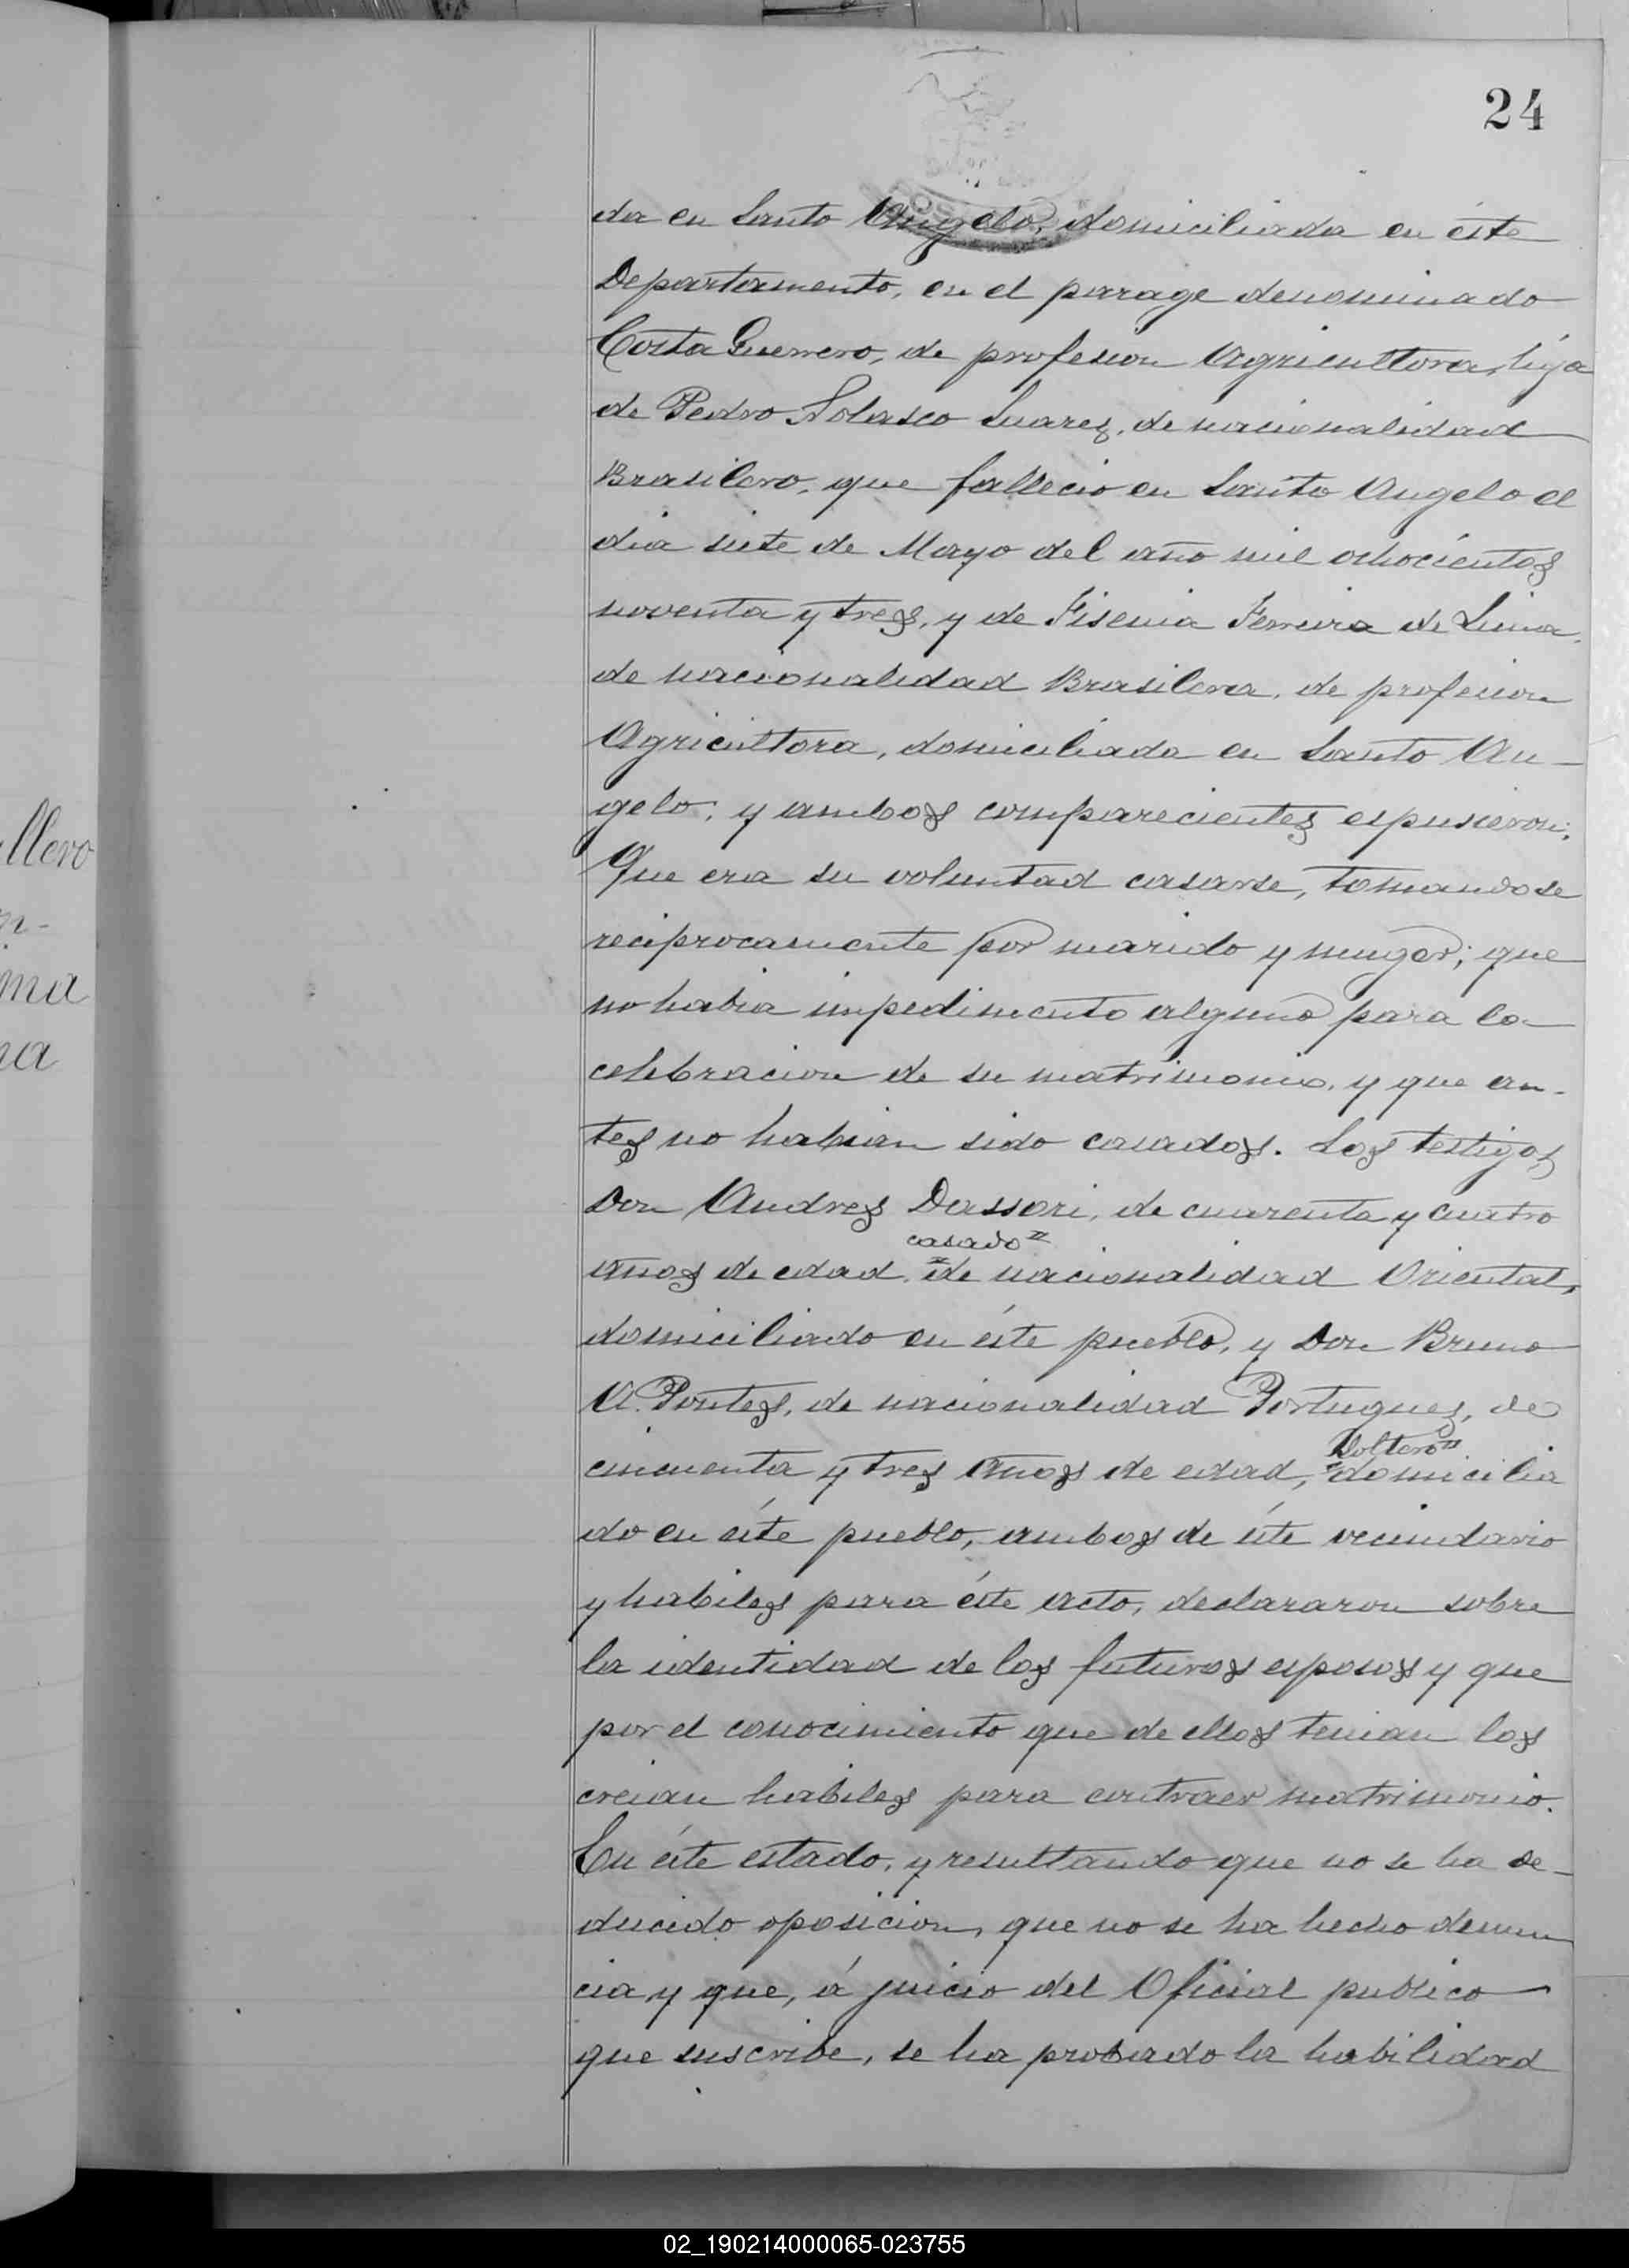 24
da en Santo Angelo, domiciliada en éste
Departamento, en el parage denominado
Costa Guerrero, de profesion Agricultora, hija
de Pedro Nolasco Suarez, de nacionalidad
Brasilero, que fallecio en Santo Angelo el
dia siete de Mayo del año mil ochocientos
noventa y tres, y de Fisenia Ferreira de Lima,
de nacionalidad Brasilera, de profesion
Agricultora, domiciliada en Santo An-
gelo; y ambos comparecientes espusieron:
Que era su voluntad casarse, tomandose
reciprocamente por marido y muger; que
no habia impedimento alguno para la
celebracion de su matrimonio, y que an-
tes no habian sido casados. Los testigos
Don Andres Dassori, de cuarenta y cuatro
casado
años de edad, de nacionalidad Oriental,
domiciliado en éste pueblo, y Don Bruno
A. Pontes, de nacionalidad Portugues, de
Solterо
cincuenta y tres años de edad, domicilia
do en éste pueblo, ambos de éste vecindario
y habiles para éste acto, declararon sobre
la identidad de los futuros esposos y que
por el conocimiento que de ellos tenian los
creian habiles para contraer matrimonio.
En éste estado, y resultando que no se ha de-
ducido oposicion, que no se ha hecho denun
cia y que, á juicio del Oficial publico
que suscribe, se ha probado la habilidad
llero
n-
ma
na
02_190214000065-023755